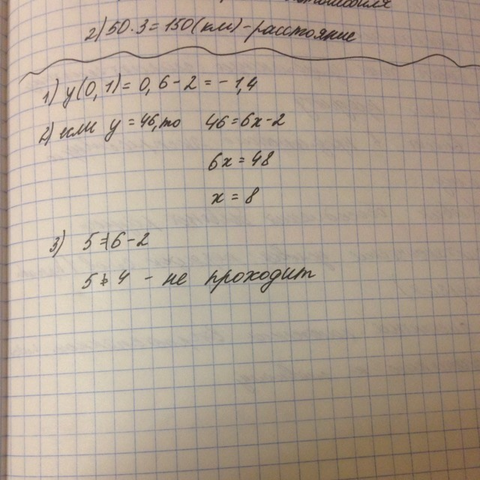 2) 50 · 3 = 150 (км) - расстояние
1) y(0,1) = 0,6 - 2 = - 1,4
2) если y = 46, то 46 = 6x - 2
6x = 48
x = 8
3) 5 ≠ 6 - 2
5 ≠ 4 - не проходит